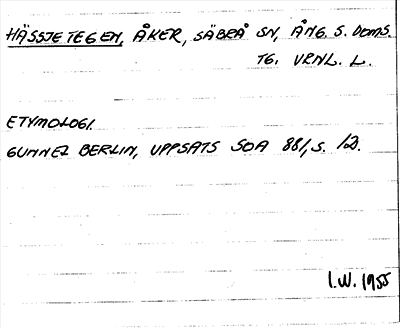 HÄSSJETEGEN, ÅKER, SÄBRÅ SN, ÅNG. S. DOMS.
TG. VRNL. L.
ETYMOLOGI.
GUNNEL BERLIN, UPPSATS SOA 881, S. 12.
I.W. 1955